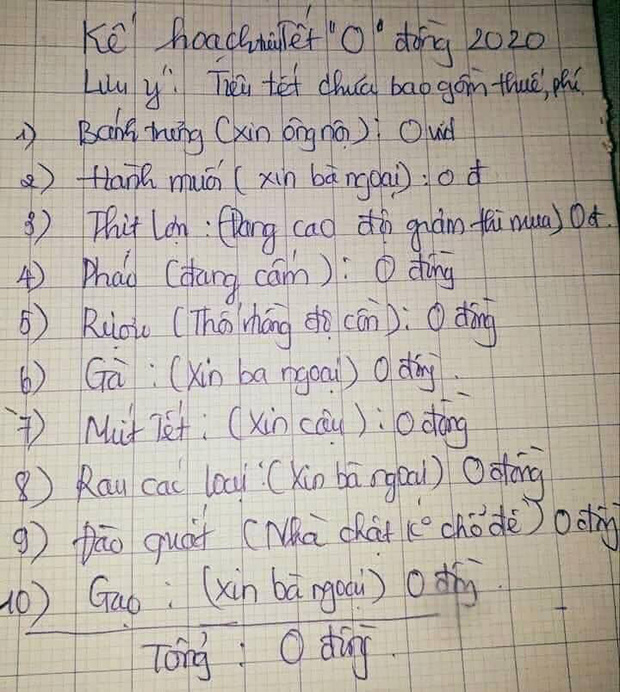 Kế hoạch tiêu Tết "0" đồng 2020
Lưu ý: Tiêu tết chưa bao gồm thuế, phí
1) Bánh trưng (xin ông nội): 0 vnd
2) Hành muối (xin bà ngoại): 0 đ
3) Thịt Lợn: (Đang cao đợi giảm thì mua) 0đ.
4) Pháo (đang cấm): 0 đồng
5) Rượu (Thổi nồng độ cồn): 0 đồng
6) Gà: (Xin bà ngoại) 0 đồng.
7) Mứt Tết: (xin cậu): 0 đồng
8) Rau các loại: (Xin bà ngoại) 0 đồng
9) Đào quất (Nhà chật k° chỗ để) 0 đồng
10) Gạo: (xin bà ngoại) 0 đồng.
Tổng: 0 đồng.